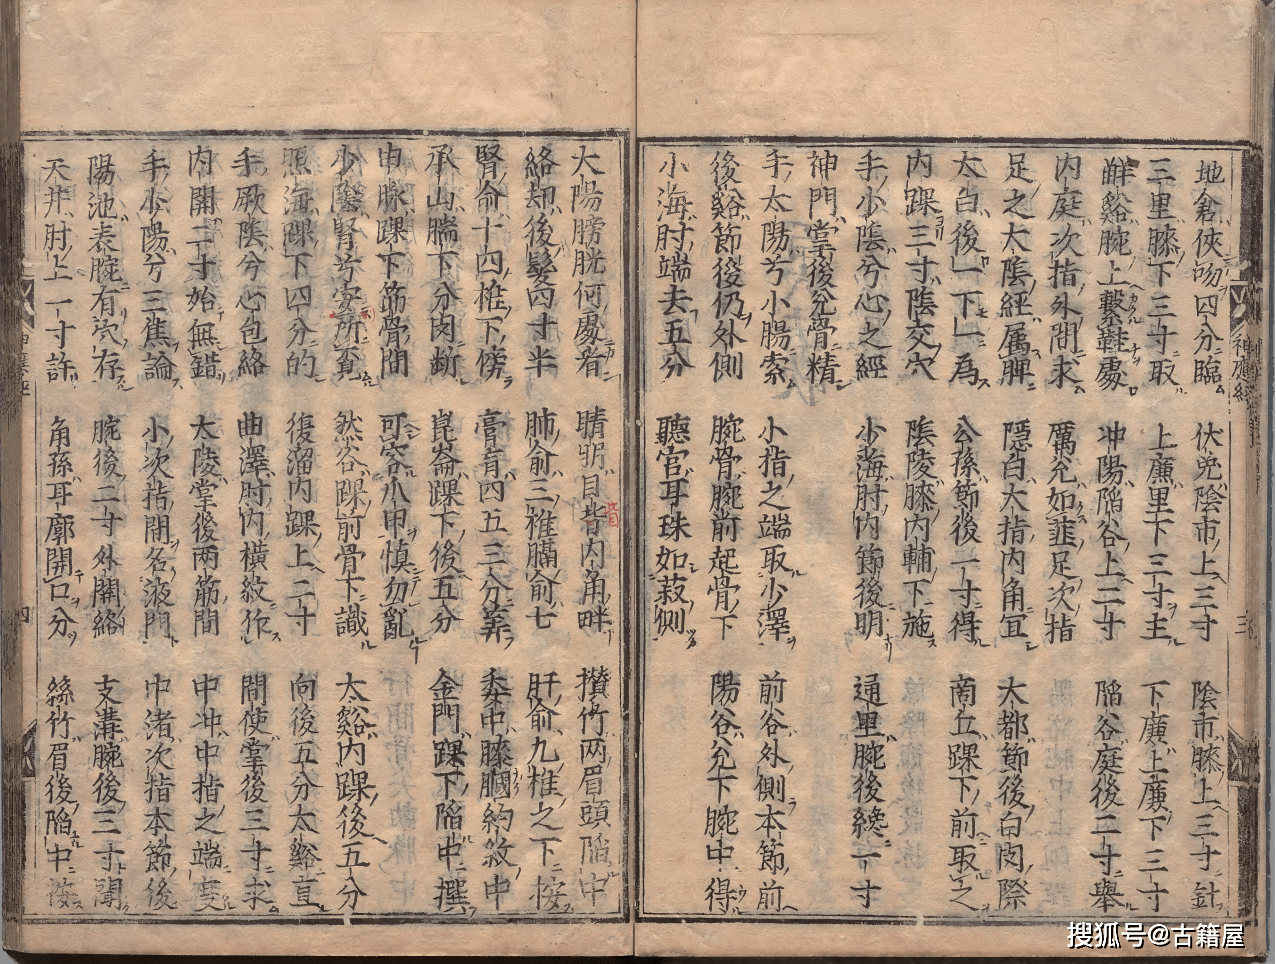 地倉俠吻四分臨 伏兔陰市上三寸 陰市膝上三寸針
三里膝下三寸取 上廉里下三寸主 下廉上廉下三寸
觧谿腕上繫鞋處 冲陽陷谷上二寸 陷谷庭後二寸舉
内庭次指外間求 厲兊如韮足次指
足之太陰經属脾 隱白大指内角宜 大都節後白肉際
太白後一下一為 公孫節後一寸得 商丘踝下前取之
内踝三寸陰交穴 陰陵膝内輔下施
手小陰兮心之經 少海肘内節後明 通里腕後纔一寸
神門掌後兊骨精
手太陽兮小腸索 小指之端取少澤 前谷外側本節前
後谿節後仍外側 腕骨腕前起骨下 陽谷兊下腕中得
小海肘端去五分 聽宮耳珠如菽側
太陽膀胱何處看 睛明目皆内角畔 攅竹两眉頭陷中
絡却後髮四寸半 肺俞三椎膈俞七 肝俞九椎之下按
腎俞十四椎下傍 膏肓四五三分筭 委中膝膕約紋中
承山腨下分肉断 崑崙踝下後五分 金門踝下陷中撰
申脉踝下筋骨間 可容爪甲慎勿亂
少陰腎兮安所覔 然谷踝前骨下識 太谿内踝後五分
照海踝下四分的 復溜内踝上二寸 向後五分太谿直
手厥陰兮心包絡 曲澤肘内横紋作 間使掌後三寸求
内關二寸始無錯 大陵掌後两筋間 中冲中指之端度
手小陽兮三焦論 小次指間名液門 中渚次指本節後
陽池表腕有穴存 腕後二寸外關絡 支溝腕後三寸聞
天井肘上一寸許 角孫耳廓開口分 絲竹眉後陷中按
三
四
搜狐号@古籍屋